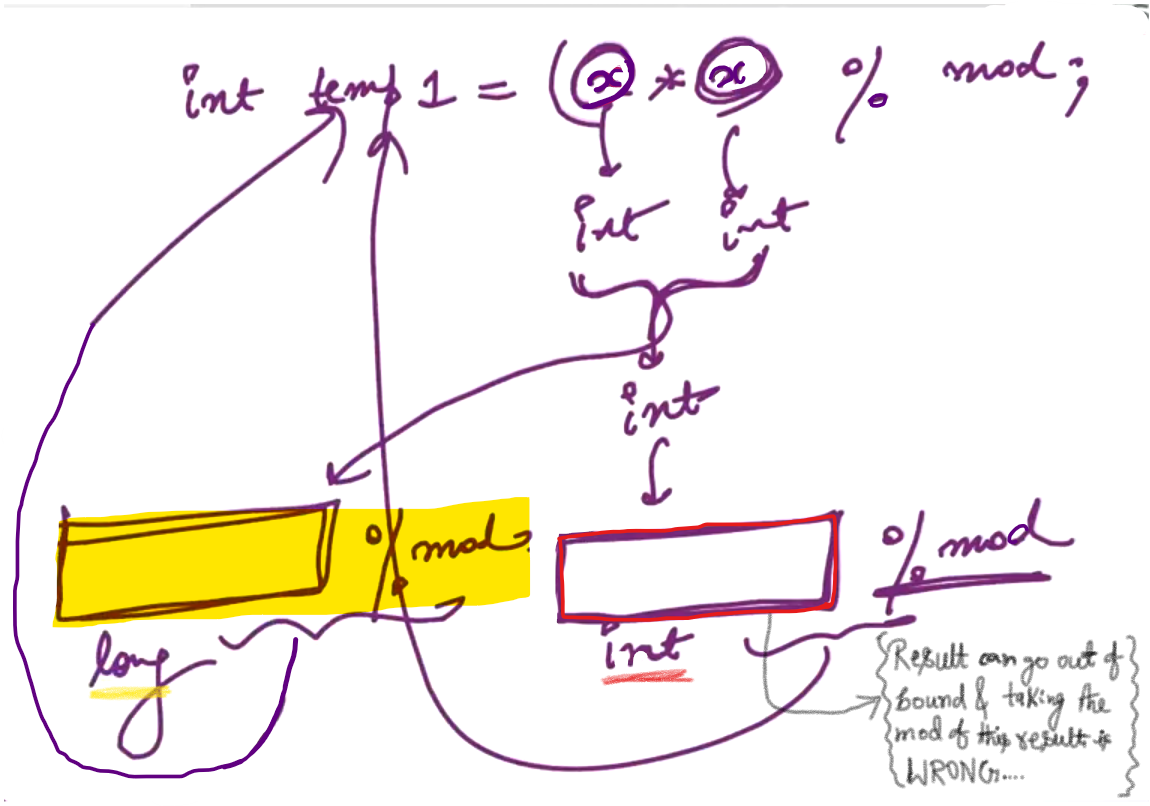 int temp 1 = (x * x % mod;
int int
int
% mod
% mod
long
int
Result can go out of
bound & taking the
mod of this result is
WRONG....